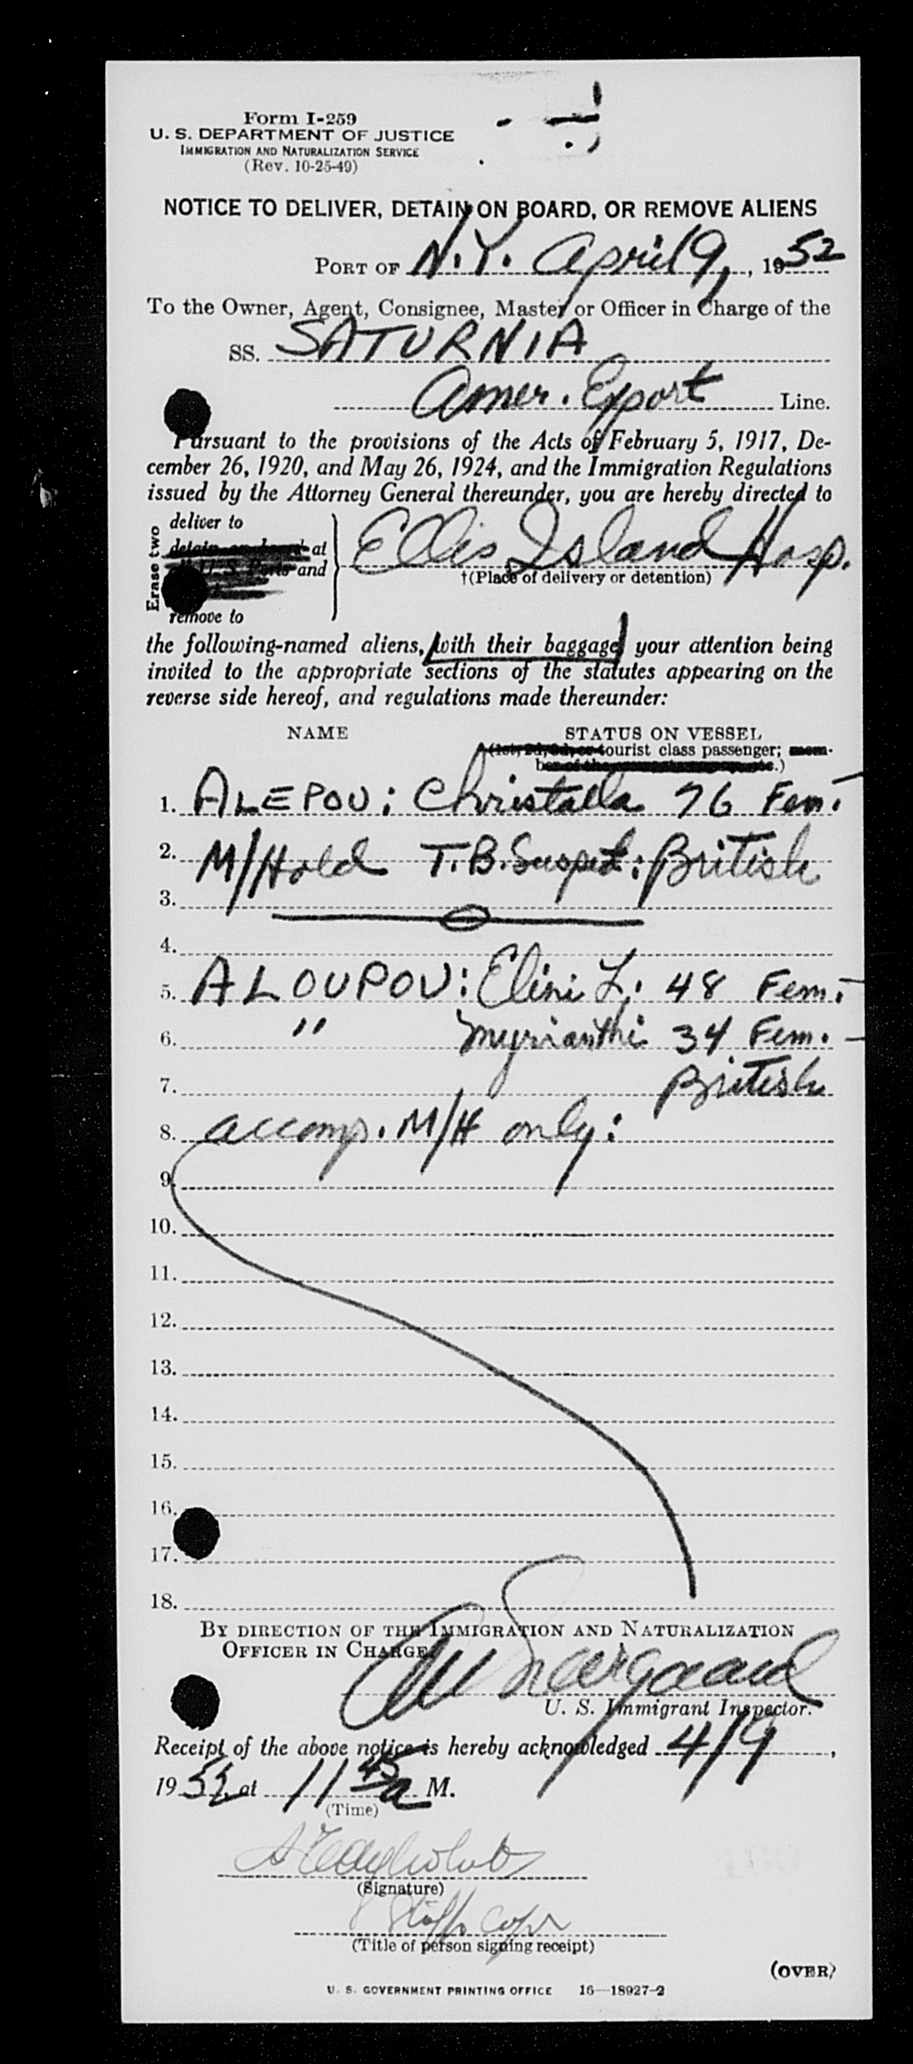 Form I-259
U. S. DEPARTMENT OF JUSTICE
IMMIGRATION AND NATURALIZATION SERVICE
(Rev. 10-25-49)
NOTICE TO DELIVER, DETAIN ON BOARD, OR REMOVE ALIENS
PORT OF N.Y. April 9, 1952
To the Owner, Agent, Consignee, Master or Officer in Charge of the
SS. SATURNIA
Amer. Export Line.
Pursuant to the provisions of the Acts of February 5, 1917, De-
cember 26, 1920, and May 26, 1924, and the Immigration Regulations
issued by the Attorney General thereunder, you are hereby directed to
Erase two
deliver to
detain on board at
U. S. Ports and
remove to
Ellis Island Hosp.
†(Place of delivery or detention)
the following-named aliens, with their baggage, your attention being
invited to the appropriate sections of the statutes appearing on the
reverse side hereof, and regulations made thereunder:
NAME STATUS ON VESSEL
(1st, 2d, 3d, or tourist class passenger; mem-
ber of the .)
1. ALEPOU: Christalla 76 Fem.-
2. M/Hold T.B. Suspect: British
3.
4.
5. ALOUPOU: Elini L: 48 Fem.-
6. " Myrianthi 34 Fem. -
7. British
8. accomp. M/H only:
9.
10.
11.
12.
13.
14.
15.
16.
17.
18.
BY DIRECTION OF THE IMMIGRATION AND NATURALIZATION
OFFICER IN CHARGE.
U. S. Immigrant Inspector.
Receipt of the above notice is hereby acknowledged 4/9,
1952, at 11 45 a M.
(Time)
(Signature)
(Title of person signing receipt)
(OVER)
U. S. GOVERNMENT PRINTING OFFICE 16—18927-2